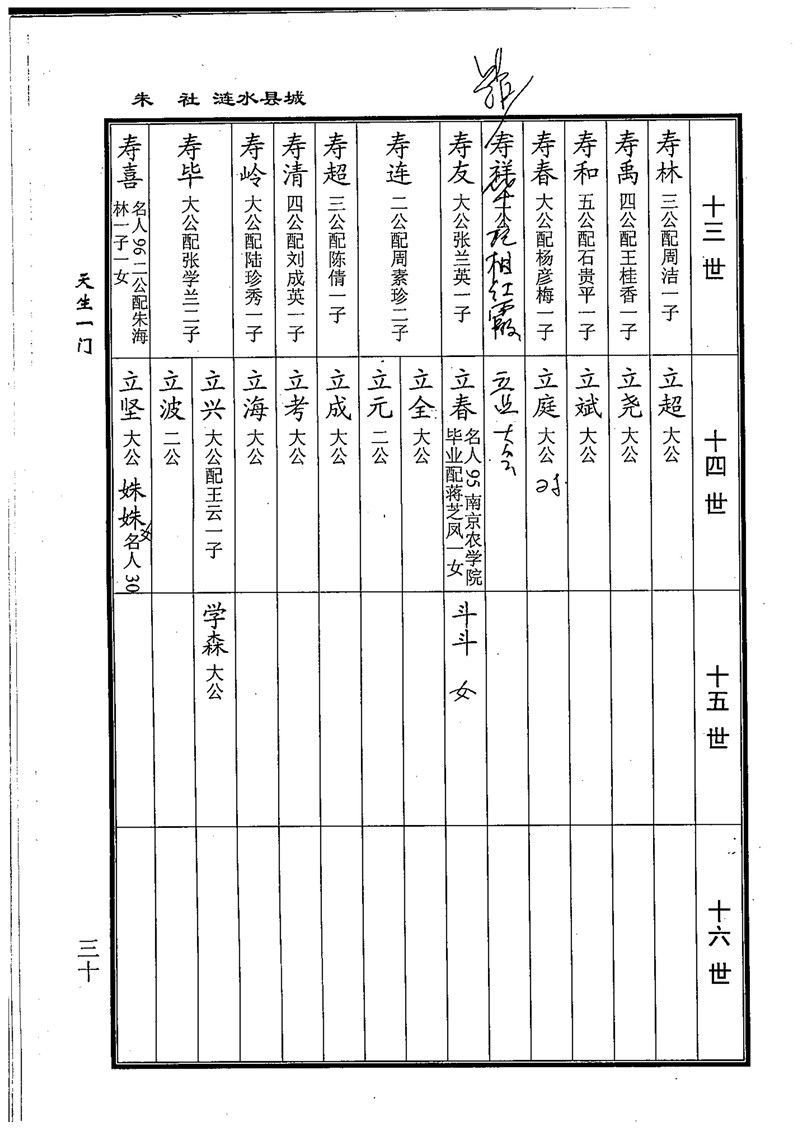 朱 社 涟水县城
十三世
寿林 三公配周洁一子
寿禹 四公配王桂香一子
寿和 五公配石贵平一子
寿春 大公配杨彦梅一子
寿祥 相红霞
寿友 大公张兰英一子
寿连 二公配周素珍二子
寿超 三公配陈倩一子
寿清 四公配刘成英一子
寿岭 大公配陆珍秀一子
寿毕 大公配张学兰二子
寿喜 名人96二公配朱海
林一子一女
十四世
立超 大公
立尧 大公
立斌 大公
立庭 大公
大公
立春 名人95南京农学院
毕业配蒋芝凤一女
立全 大公
立元 二公
立成 大公
立考 大公
立海 大公
立兴 大公配王云一子
立波 二公
立坚 大公
姝姝 女 名人30
十五世
斗斗 女
学森 大公
十六世
天生一门
三十